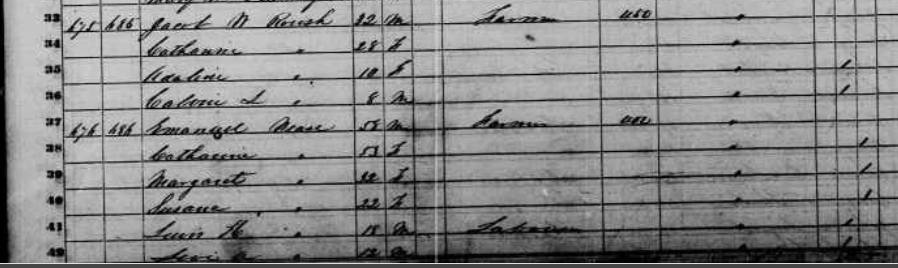 33 675 686 Jacob W Roush 32 M Farmer 450 "
34 Catharine " 28 F "
35 Adaline " 10 F " /
36 Calvin L " 8 M " /
37 676 686 Emanuel Nease 58 M Farmer "
38 Catharine " 53 F " /
39 Margaret " F " /
40 Susana " 22 F " /
41 Lewis H " 18 M Laborer " /
42 Levi " 12 M " /